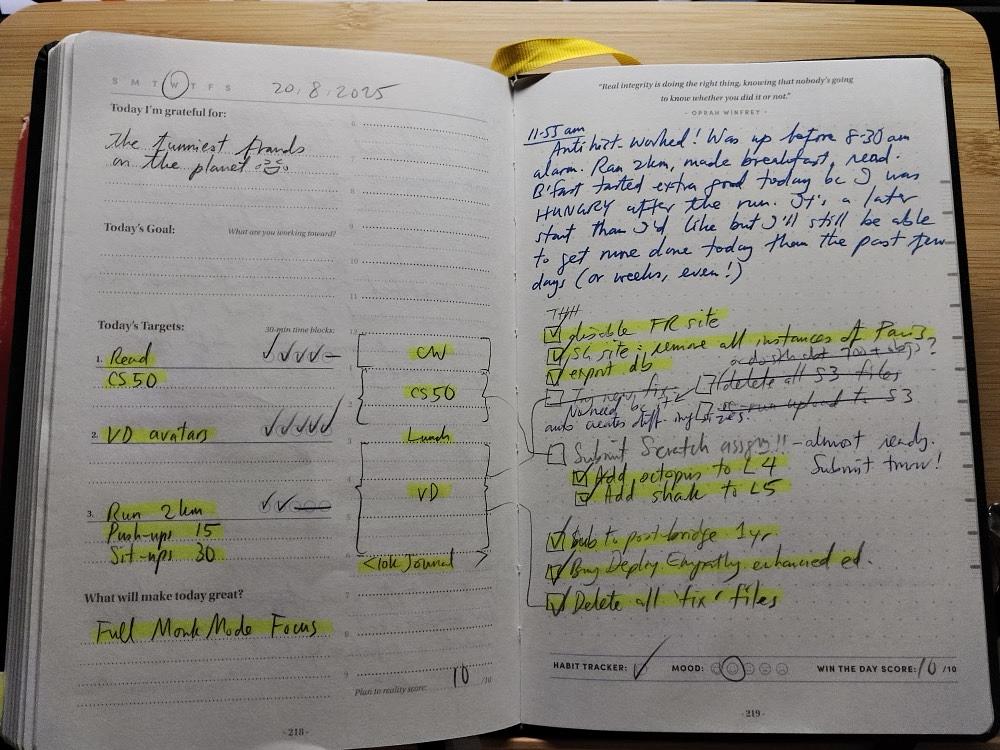 S M T W T F S 20.8.2025
Today I'm grateful for:
the funniest friends
on the planet
Today's Goal: What are you working toward?
Today's Targets: 30-min time blocks:
1. Read
CS50
2. VD avatars
3. Run 2km
Push-ups 15
Sit-ups 30
What will make today great?
Full Monk Mode Focus
6
7
8
9
10
11
12
CW
1
CS50
2
3 Lunch
4
VD
5
6
<10k Journal >
7
8
9
Plan to reality score: 10 /10
- 218 -
"Real integrity is doing the right thing, knowing that nobody's going
to know whether you did it or not."
- OPRAH WINFREY -
11-55 am
Antihist. worked! Was up before 8-30 am
alarm. Ran 2km, made breakfast, read.
B'fast tasted extra good today bc I was
HUNGRY after the run. It's a later
start than I'd like but I'll still be able
to get more done today than the past few
days (or weeks, even!)
disable FR site
SG site: remove all instances of Paris
export db
?
delete all S3 files
No need bc it
auto creates diff. img sizes.
re-run upload to S3
Submit Scratch assgn!! - almost ready.
Submit tmrw!
Add octopus to L4
Add shark to L5
Sub to post-bridge 1yr
Buy Deploy Empathy enhanced ed.
Delete all 'fix' files
HABIT TRACKER: MOOD: WIN THE DAY SCORE: 10 /10
- 219 -